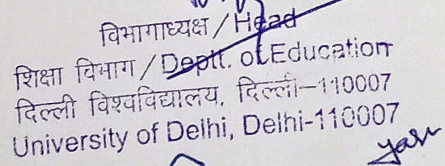 विभागाध्यक्ष / Head
शिक्षा विभाग / Deptt. of Education
दिल्ली विश्वविद्यालय, दिल्ली–110007
University of Delhi, Delhi-110007